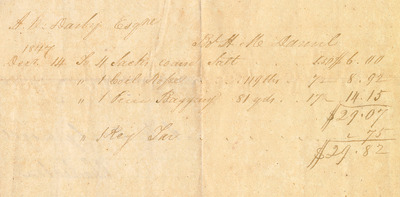 A. W. Bailey Esqre
1847
Dec 14 To 4 Sacks Salt 6.00
" 1 Coil Rope 119 lbs 7 8.92
" 1 Piece Bagging 81 yds 17 14.15
$29.07
" 1 Keg 75
$29.82